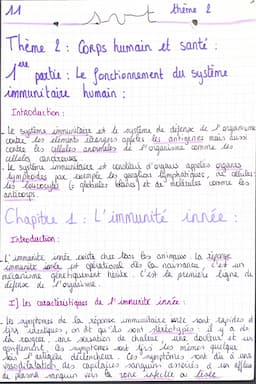 11
svt
thème 2
Thème 2 : Corps humain et santé :
1ère partie : Le fonctionnement du système
immunitaire humain :
Introduction :
Le système immunitaire est le système de défense de l'organisme
contre les éléments étrangers appelés les antigènes mais aussi
contre les cellules anormales de l'organisme comme les
cellules cancéreuses.
Le système immunitaire est constitué d'organes appelés organes
lymphoïdes par exemple les ganglions lymphatiques, de cellules :
les leucocytes (= globules blancs) et de molécules comme les
anticorps.
Chapitre 1 : L'immunité innée :
Introduction :
L'immunité innée existe chez tous les animaux. La réponse
immunitaire innée est opérationnelle dès la naissance, c'est un
mécanisme génétiquement hérité. C'est la première ligne de
défense de l'organisme.
I) Les caractéristiques de l'immunité innée :
Les symptômes de la réponse immunitaire innée sont rapides et
identiques, on dit qu'ils sont stéréotypés : il y a de
la rougeur, une sensation de chaleur, une douleur et un
gonflement. Ces symptômes sont les mêmes quelque
soit l'antigène déclencheur. Ces symptômes sont dû à une
vasodilatation des capillaires sanguins associés à un afflux
de plasma sanguin vers la zone infectée ou lésée.